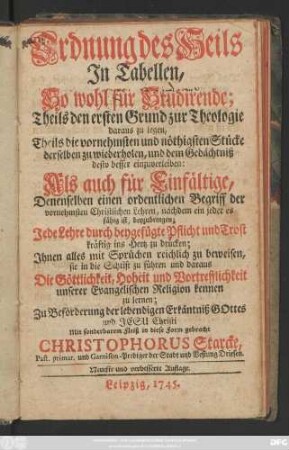 Ordnung des Heils
In Tabellen,
So wohl für Studirende;
Theils den ersten Grund zur Theologie
daraus zu legen,
Theils die vornehmsten und nöthigsten Stücke
derselben zu wiederholen, und dem Gedächtniß
desto besser einzuverleiben:
Als auch für Einfältige,
Denenselben einen ordentlichen Begriff der
vornehmsten Christlichen Lehren, nachdem ein jeder es
fähig ist, beyzubringen;
Jede Lehre durch beygefügte Pflicht und Trost
kräftig ins Hertz zu drücken;
Ihnen alles mit Sprüchen reichlich zu beweisen,
sie in die Schrift zu führen und daraus
Die Göttlichkeit, Hoheit und Vortreflichkeit
unserer Evangelischen Religion kennen
zu lernen;
Zu Beförderung der lebendigen Erkäntniß GOttes
und JESU Christi
Mit sonderbarem Fleiß in diese Form gebracht
CHRISTOPHORUS Starcke,
Past. primar. und Garnison-Prediger der Stadt und Vestung Driesen.
Neueste und verbesserte Auflage.
Leipzig, 1745.